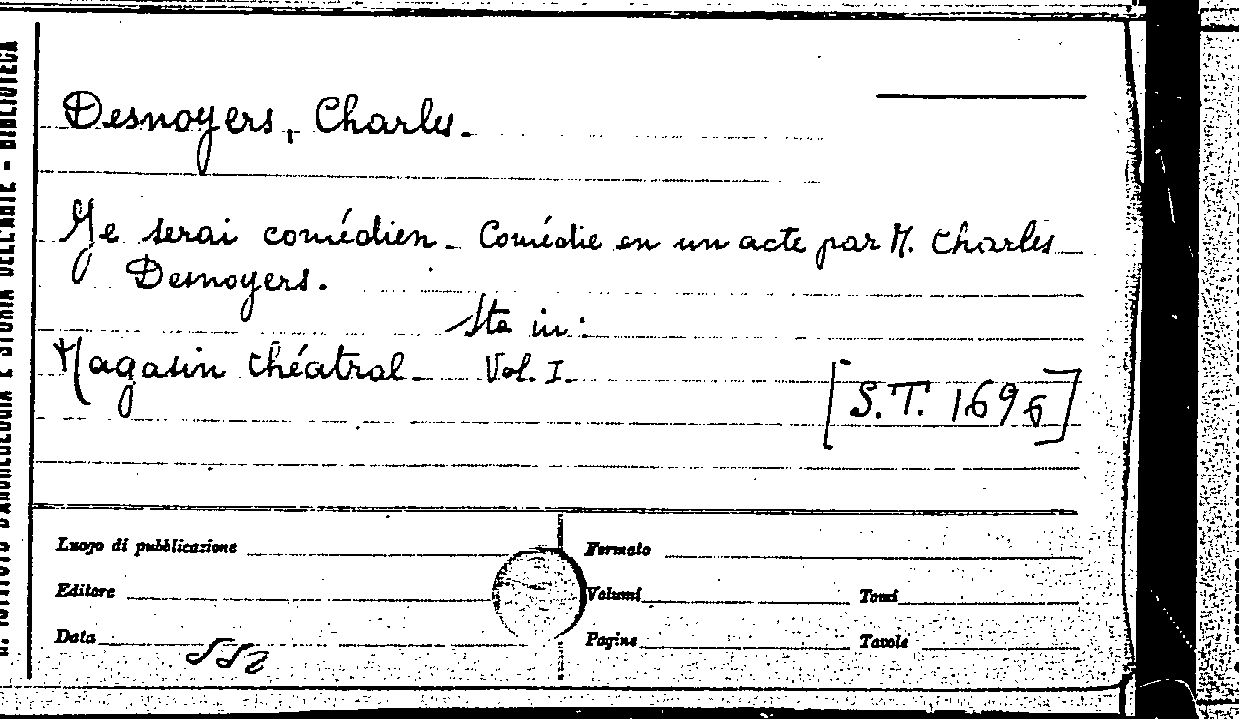 Desnoyers, Charles.
Je serai comédien - Comédie en un acte par M. Charles
Desnoyers.
Sta in:
Magasin théatral - Vol. I.
[S.T. 1696]
Luogo di pubblicazione
Formato
Editore
Volumi
Tomi
Data
Pagine
Tavole
ISTITUTO D'ARCHEOLOGIA E STORIA DELL'ARTE - BIBLIOTECA